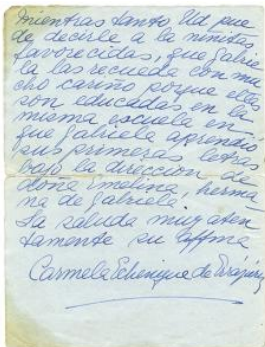 Mientras tanto Ud pue
de decirle a la niñitas
favorecidas, que Gabrie
la las recueda con mu
cho cariño porque ellas
son educadas en la
misma escuela en
que Gabriela aprendió
sus primeras letras
bajo la dirección de
doña Emelina, herma
na de Gabriela.
La saluda muy aten
tamente su affma
Carmela Echenique de